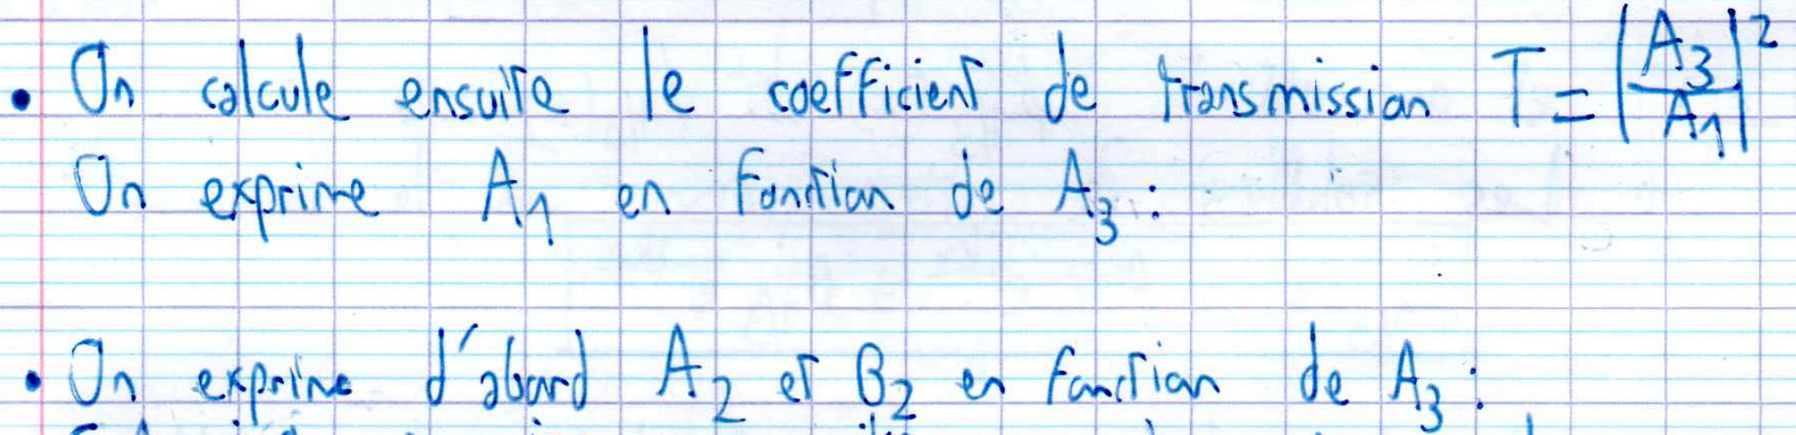 • On calcule ensuite le coefficient de transmission T = |A₃/A₁|²
On exprime A₁ en fonction de A₃ :
• On exprime d'abord A₂ et B₂ en fonction de A₃ :